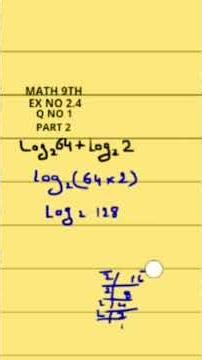 MATH 9TH
EX NO 2.4
Q NO 1
PART 2
Log₂64 + Log₂2
Log₂(64×2)
Log₂ 128
2 16
2 8
2 4
2 2
1